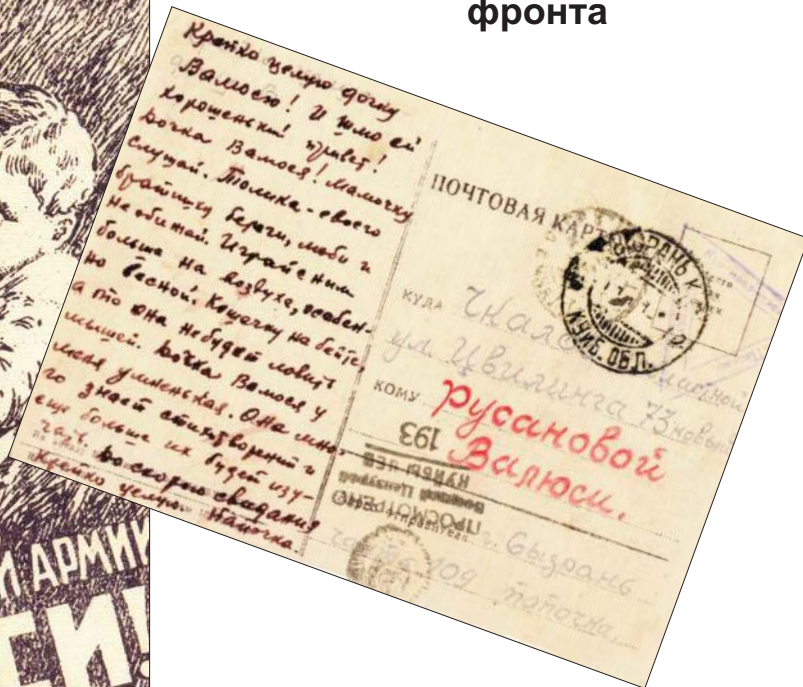 фронта
Крепко целую дочку
Валюсю! И шлю ей
хорошенький привет!
Дочка Валюся! Мамочку
слушай. Толика - своего
братишку береги, люби и
не обижай. Играй с ним
больше на воздухе, особен-
но весной. Кошечку не бейте,
а то она не будет ловить
мышей. Дочка Валюся у
меня умненькая. Она мно-
го знает стихотворений и
еще больше их будет изу-
чать. До скорого свидания
Крепко целую. Папочка.
ПОЧТОВАЯ
КУЙБ. ОБЛ.
КУДА
ул. Цвилинга 73
КОМУ Русановой
Валюси.
193
КУЙБЫШЕВ
Военной Цензурой
ПРОСМОТРЕНО
г. Сызрань
109 папочка
И АРМИИ
СИ!